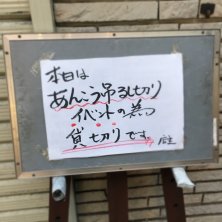 本日は
あんこう吊るし切り
イベントの為
貸切りです。 店主